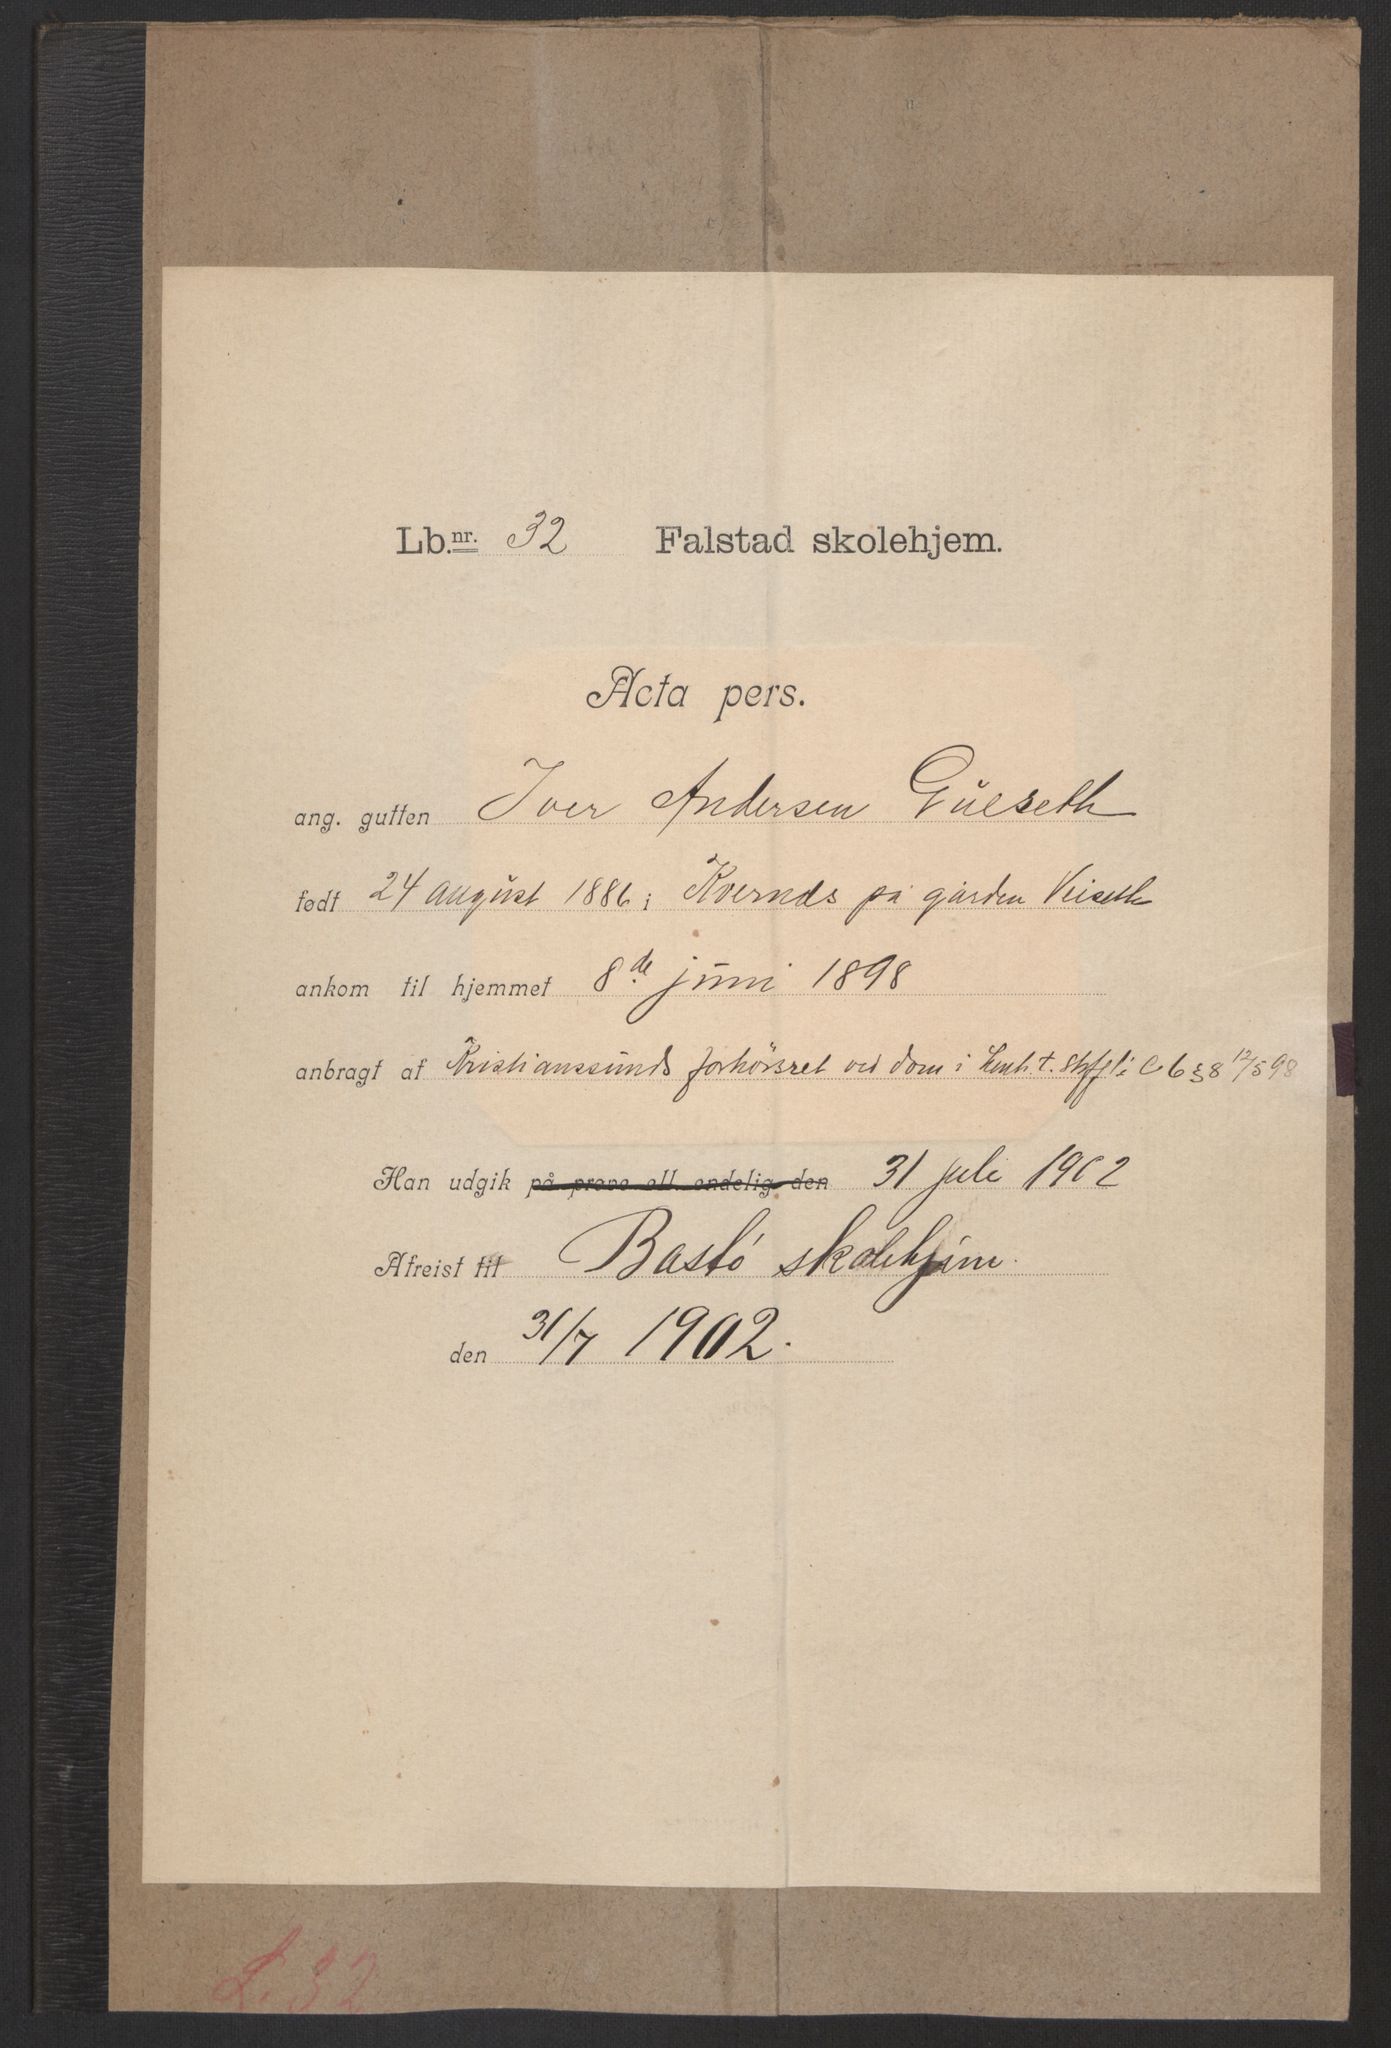 Lb.nr. 32 Falstad skolehjem.
Acta pers.
ang. gutten Iver Andersen Gulseth
født 24 august 1886 i Kvernes på gården Veiseth
ankom til hjemmet 8de juni 1898
anbragt af Kristianssunds forhørsret ved dom i henh. t. C 6 § 8 12/5 98
Han udgik på prøve ell. endelig den 31 juli 1902
Afreist til Bastö skolehjem.
den 31/7 1902.
L. 32